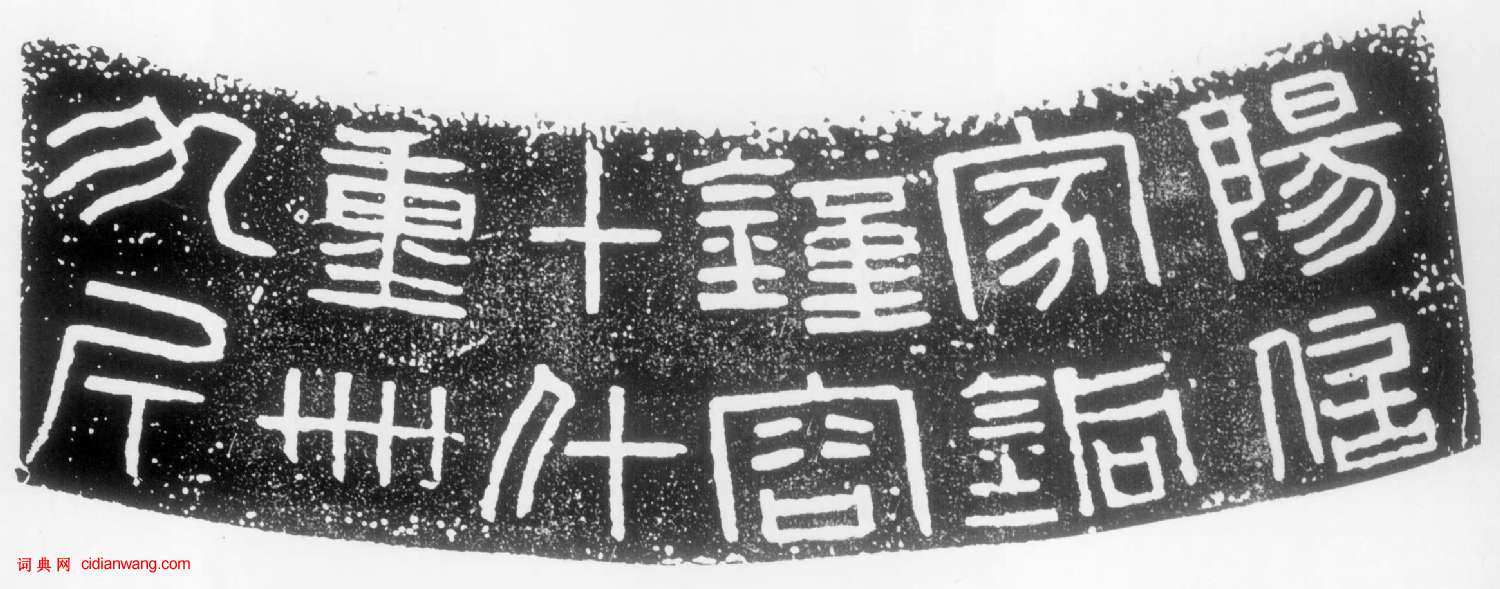 陽信
家銅
鍾容
十斗
重卌
九斤
词典网 cidianwang.com